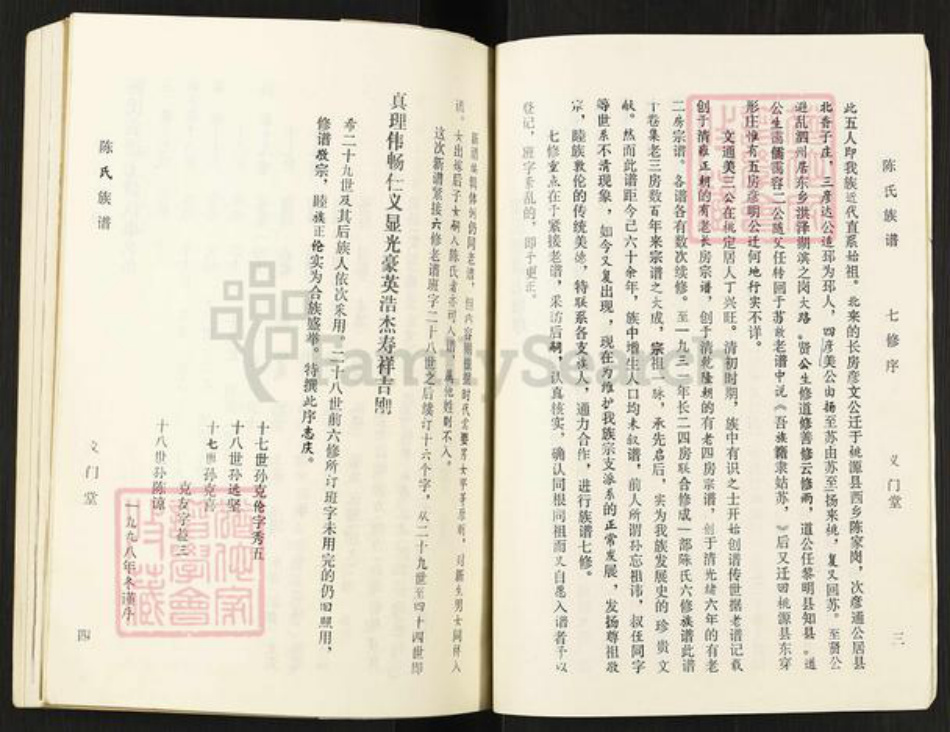 陈氏族谱 七修序 义门堂 三
此五人即我族近代直系始祖。北来的长房彦文公迁于桃源县西乡陈家岗，次彦通公居县
北香子庄，三彦达公迨邳为邳人，四彦美公由扬至苏由苏至扬来桃，复又回苏。至贤公
避乱泗州居东乡洪泽湖滨之岗大路。贤公生修道修善修云修雨，道公任黎明县知县。道
公生霭儒霭容二公随父任转回于苏故老谱中说《吾族籍隶姑苏，》后又迁回桃源县东穿
形庄惟有五房彦明公迁何地行实不详。
文通美三公在桃定居人丁兴旺。清初时期，族中有识之士开始创谱传世据老谱记载
创于清雍正朝的有老长房宗谱，创于清乾隆朝的有老四房宗谱，创于清光绪六年的有老
二房宗谱。各谱各有数次续修。至一九三一年长二四房联合修成一部陈氏六修族谱此谱
十卷集老三房数百年来宗谱之大成，宗祖一脉，承先启后，实为我族发展史的珍贵文
献。然而此谱距今已六十余年，族中增生人口均未叙谱，前人所谓孙忘祖讳，叔侄同字
等世系不清现象，如今又复出现，现在为维护我族宗支派系的正常发展，发扬尊祖敬
宗，睦族敦伦的传统美德，特联系各支族人，通力合作，进行族谱七修。
七修重点在于紧接老谱，采访后嗣，认真核实，确认同根同祖而又自愿入谱者予以
登记，班字紊乱的，即予更正。
新谱编辑体例仍同老谱，但内容则根据时代需要男女平等原则，对新生男女同样入
谱。女出嫁后子女嗣入陈氏者亦可入谱，其他姓则不入。
这次新谱紧接六修老谱班字二十八世之后续订十六个字，从二十九世至四十四世即
真理伟畅仁义显光豪英浩杰寿祥吉刚
希二十九世及其后族人依次采用。二十八世前六修所订班字未用完的仍旧照用，
修谱敬宗，睦族正伦实为合族盛举，特撰此序志庆。
十七世孙克伦字秀五
十八世孙选坚
十七世孙克喜
克友字益三
十八世孙陈谅
一九九八年冬谨序
陈氏族谱
义门堂
四
FamilySearch